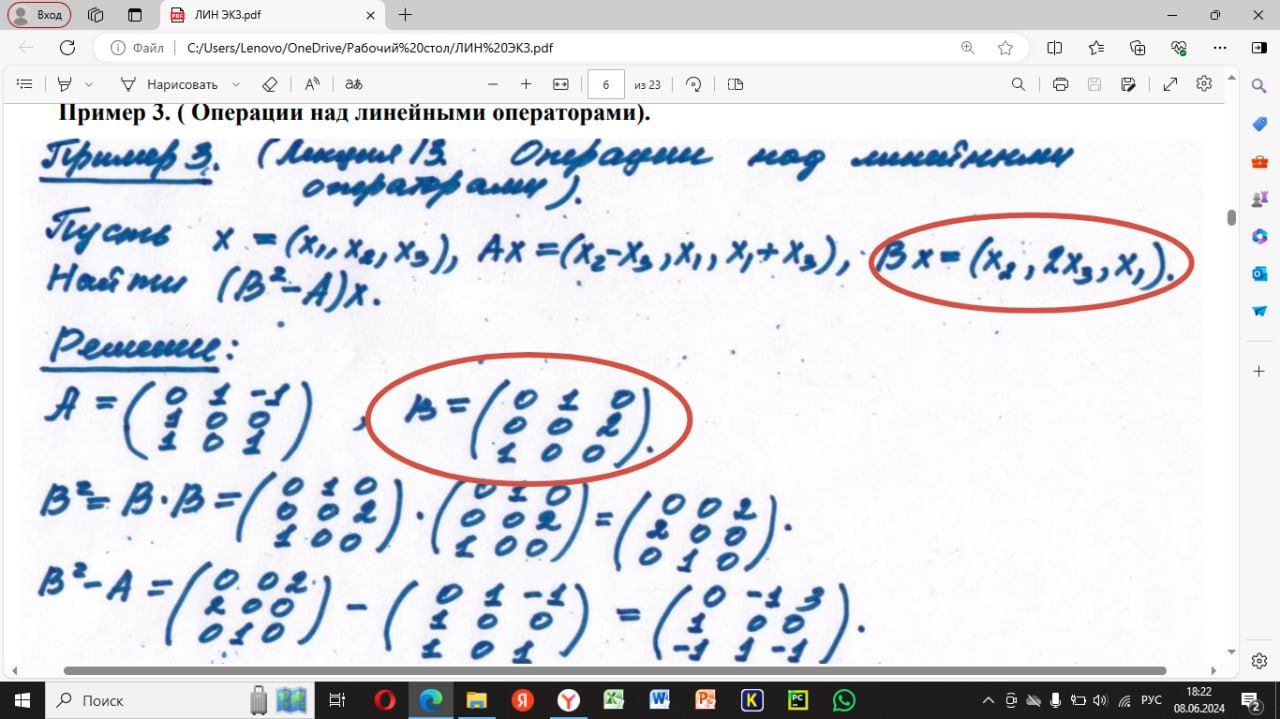 Вход
ЛИН ЭКЗ.pdf
Файл
C:/Users/Lenovo/OneDrive/Рабочий%20стол/ЛИН%20ЭКЗ.pdf
Нарисовать
6 из 23
Пример 3. ( Операции над линейными операторами).
Пример 3. (Лекция 13. Операции над линейными
операторами).
Пусть x = (x₁, x₂, x₃), Ax = (x₂-x₃, x₁, x₁+x₃), Bx = (x₂, 2x₃, x₁).
Найти (B²-A)x.
Решение:
A = (0 1 -1
1 0 0
1 0 1) , B = (0 1 0
0 0 2
1 0 0).
B² = B·B = (0 1 0
0 0 2
1 0 0) · (0 1 0
0 0 2
1 0 0) = (0 0 2
2 0 0
0 1 0).
B²-A = (0 0 2
2 0 0
0 1 0) - (0 1 -1
1 0 0
1 0 1) = (0 -1 3
1 0 0
-1 1 -1).
Поиск
РУС
18:22
08.06.2024
2